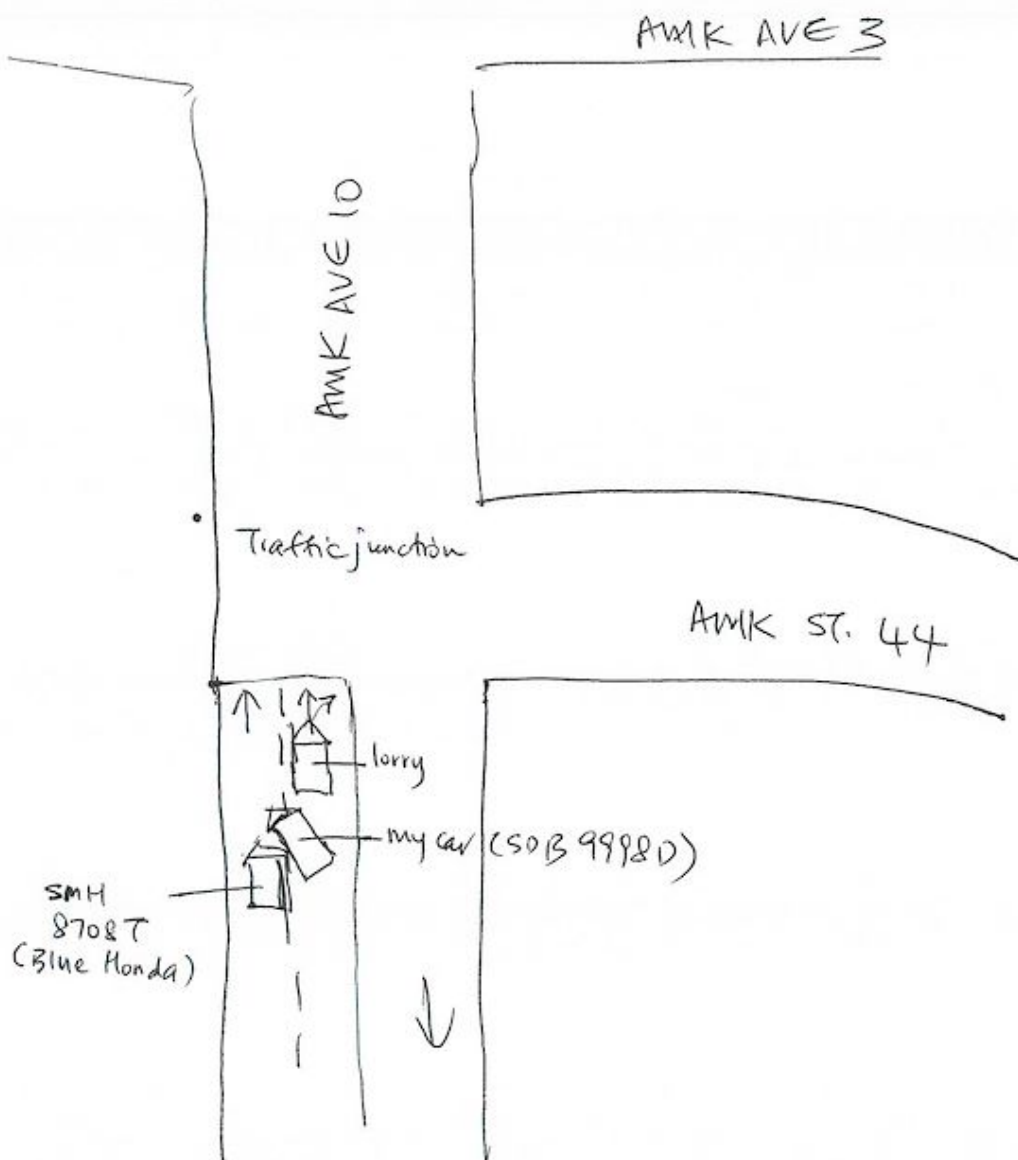 AMK AVE 3
AMK AVE 10
Traffic junction
AMK ST. 44
lorry
my car (SDB 9998D)
SMH
8708T
(Blue Honda)